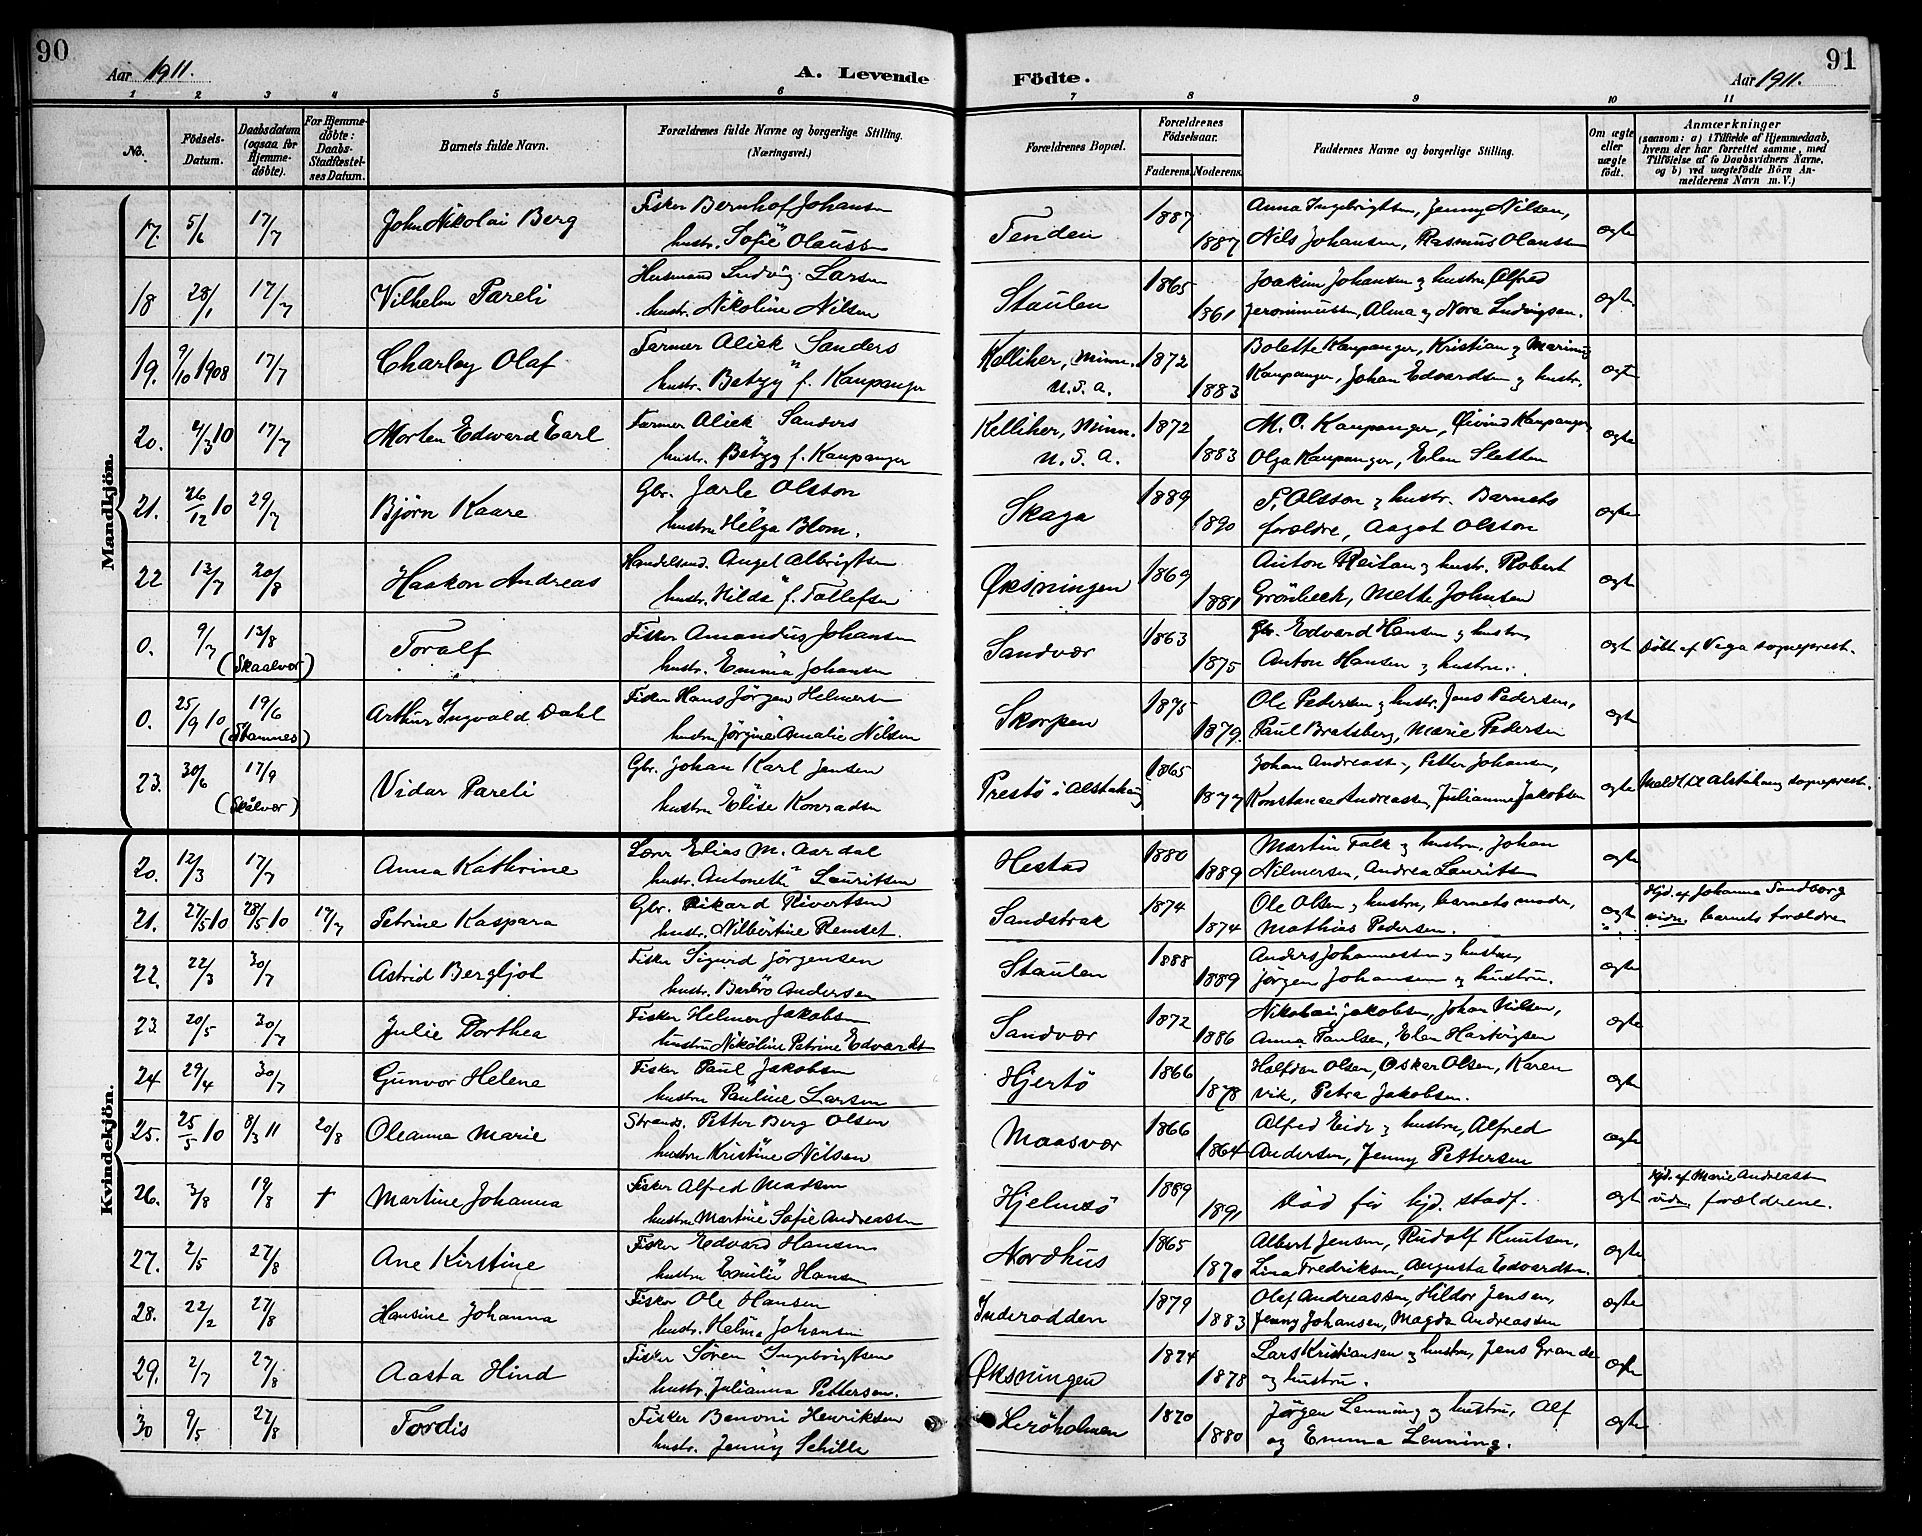 90
Aar 1911.
A. Levende
Födte.
Aar 1911.
91
1 2 3 4 5 6 7 8 9 10 11
No.
Födsels-Datum.
Daabsdatum (ogsaa for Hjemmedöbte).
For Hjemmedöbte: Daabs-Stadfæstelses Datum.
Barnets fulde Navn.
Forældrenes fulde Navne og borgerlige Stilling. (Næringsvei.)
Forældrenes Bopæl.
Forældrenes Födselsaar.
Faderens. Moderens.
Faddernes Navne og borgerlige Stilling.
Om ægte eller uægte födt.
Anmærkninger
(saasom: a) i Tilfælde af Hjemmedaab, hvem der har forrettet samme, med Tilföielse af to Daabsvidners Navne, og b) ved uægtefödte Börn Anmelderens Navn m. V.)
Mandkjön.
17. 5/6 17/7 John Nikolai Berg Fisker Bernhof Johansen Tenden 1887 Anna Ingebrigtsen, Jenny Nilsen, ægte
hustr. Sofie Olaussen 1887 Nils Johansen, Rasmus Olaussen
18 28/1 17/7 Vilhelm Pareli Husmand Ludvig Larsen Staulen 1865 Joakim Johansen og hustru Alfred ægte
hustr. Nikoline Nilsen 1861 Jeronimussen, Alma og Nora Ludvigsen.
19. 9/10 1908 17/7 Charley Olaf Farmer Alick Sanders Kelliher, Minn. 1872 Bolette Kaupanger, Kristian og Marinus ægte
hustr. Betzy f. Kaupanger U.S.a. 1883 Kaupanger, Johan Edvardsen og hustr.
20. 4/3 10 17/7 Morten Edward Earl Farmer Alick Sanders Kelliher, Minn. 1872 M. O. Kaupanger, Øivind Kaupanger, ægte
hustr. Betzy f. Kaupanger U.S.a. 1883 Olga Kaupanger, Elen Sletten
21. 26/12 10 29/7 Bjørn Kaare Gbr. Jarle Olsson Skaga 1889 F. Olsson og hustr. Barnets ægte
hustru Helga Blom. 1890 forældre, Aagot Olsson
22 12/7 20/8 Haakon Andreas Handelsmd. Angel Albrigtsen Øksningen 1869 Anton Reitan og hustr. Robert ægte
hustr. Hilda f. Tollefsen 1881 Grönbeck, Mette Johnsen
0. 9/7 13/8 Toralf Fisker Amandus Johansen Sandvær 1863 Gbr. Edvard Hansen og hustru ægte Döbt af Vega sogneprest.
(Skaalvær) hustr. Emma Johansen 1875 Anton Hansen og hustru.
0. 25/9 10 19/6 Arthur Ingvald Dahl Fisker Hans Jörgen Helmersen Skorpen 1875 Ole Pedersen og hustr. Jens Pedersen, ægte
(Stamnes) hustru Jörgine Amalie Nilsen 1879. Paul Bratsberg, Marie Pedersen
23. 30/6 17/9 Vidar Pareli Gbr. Johan Karl Jensen Prestö i Alstahaug 1865 Johan Andreassen, Petter Johansen, ægte Meldt til Alstahaug sogneprest.
(Skålvær) hustru Elise Konradsen 1877 Konstance Andreassen, Julianne Jakobsen
Kvindekjön.
20. 12/3 17/7 Anna Kathrine Lærer Elias M. Aardal Hestad 1880 Martin Falk og hustru, Johan ægte
hustr. Antonette Lauritsen 1889 Hilmersen, Andrea Lauritsen
21. 27/5 10 28/5 10 17/7 Petrine Kaspara Gbr. Rikard Sivertsen Sandstrak 1874 Ole Olsen og hustru, barnets moder, ægte Hjd. af Johanna Sandborg
hustr. Nilbertine Remset. 1874 Mathias Pedersen. vidne barnets forældre
22. 22/3 30/7 Astrid Bergljot Fisker Sigurd Jörgensen Staulen 1888 Anders Johannessen og hustru, ægte
hustr. Barbro Andersen 1889 Jörgen Johansen og hustru.
23. 20/5 30/7 Julie Dorthea Fisker Helmer Jakobsen Sandvær 1872 Nikolai Jakobsen, Johan Nilsen, ægte
hustru Nikoline Petrine Edvardsen 1886 Anna Paulsen, Elen Hartvigsen
24 29/4 30/7 Gunvor Helene Fisker Paul Jakobsen Hjertö 1866 Halfdan Olsen, Oskar Olsen, Karen ægte
hustru Pauline Larsen 1878 Vik, Petra Jakobsen.
25. 25/5 10 8/3 11 20/8 Oleanna Marie Strands. Petter Berg Olsen Maasvær 1866 Alfred Eide og hustru, Alfred ægte
hustru Kristine Nilsen 1864 Andersen, Jenny Pettersen
26. 3/8 19/8 + Martine Johanna Fisker Alfred Madsen Hjelmsö 1889 Död för hjd. stadf. ægte Hjd. af Marie Andreassen
hustru Martine Sofie Andreassen 1891 vidne forældrene.
27. 2/5 27/8 Ane Kirstine Fisker Edvard Hansen Nordhus 1865 Albert Jensen, Rudolf Knutsen, ægte
hustru Emilie Hansen 1870 Lina Fredriksen, Augusta Edvardsen.
28. 22/2 27/8 Hansine Johanna Fisker Ole Hansen Inderodden 1879 Olaf Andreassen, Hildor Jensen, ægte
hustr. Helma Johansen 1883 Jenny Johansen, Magda Andreassen
29. 2/7 27/8 Aasta Hind Fisker Sören Ingebrigtsen Øksningen 1874 Lars Kristiansen og hustru, Jens Grande ægte
hustr. Julianna Pettersen. 1878 og hustru.
30 9/5 27/8 Tordis Fisker Benoni Henriksen Heröholmen 1870 Jörgen Lenning og hustru, Alf ægte
hustr. Jenny Schille 1880 og Emma Lenning.